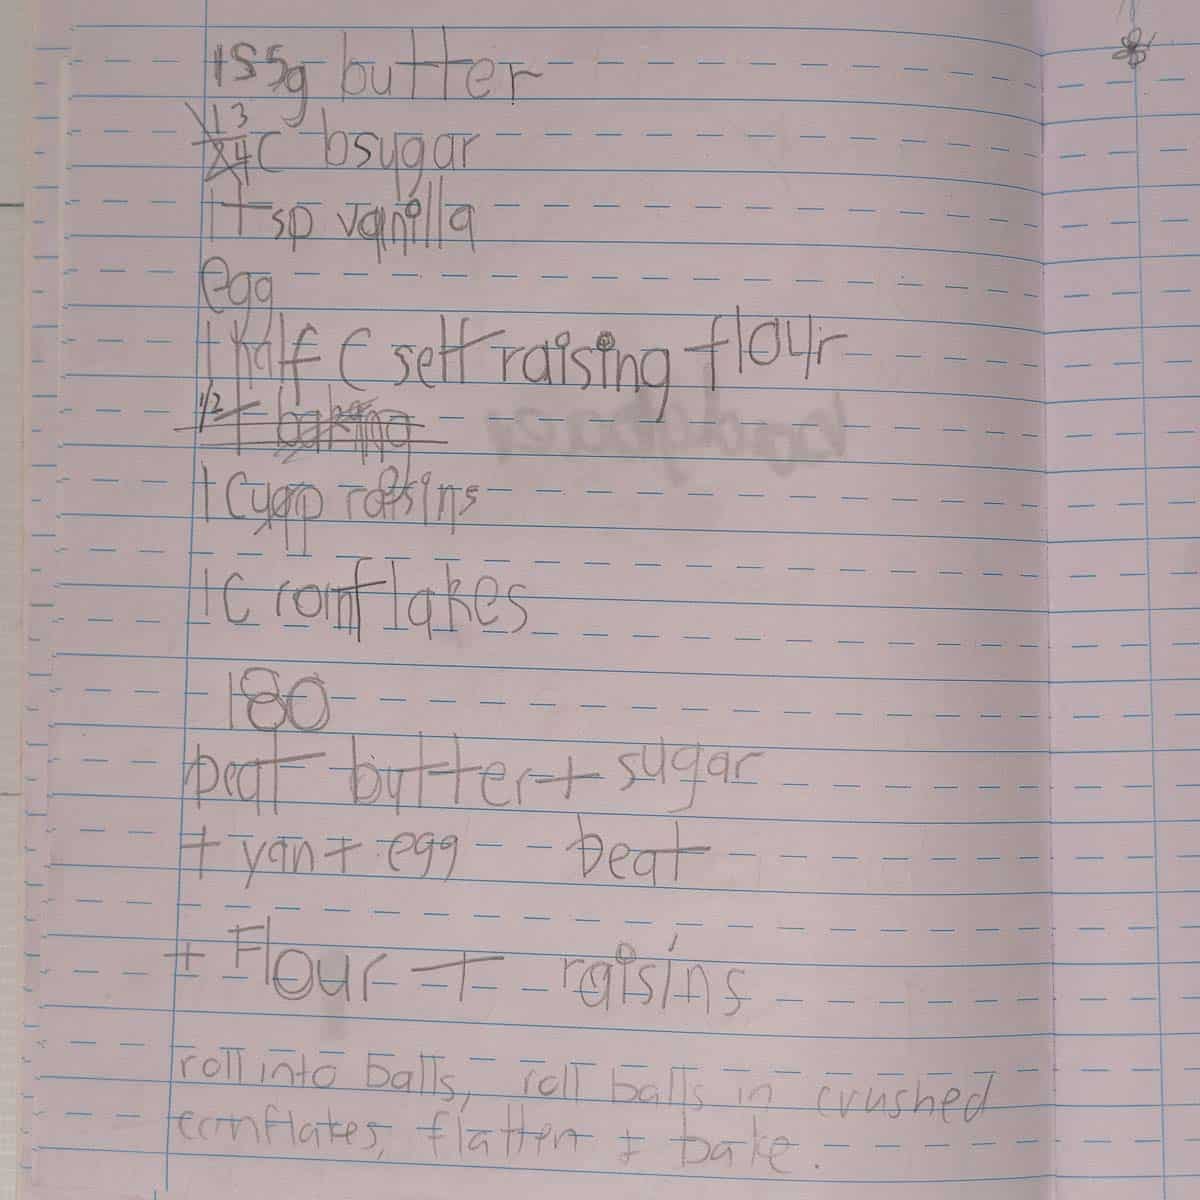 155g butter
3/4 C bsugar
1tsp vanilla
egg
1 half C self raising flour
1/2 t baking
1 Cup raisins
1C cornflakes
180
beat butter + sugar
+ van + egg beat
+ Flour + raisins
roll into balls, roll balls in crushed
cornflakes, flatten + bake.